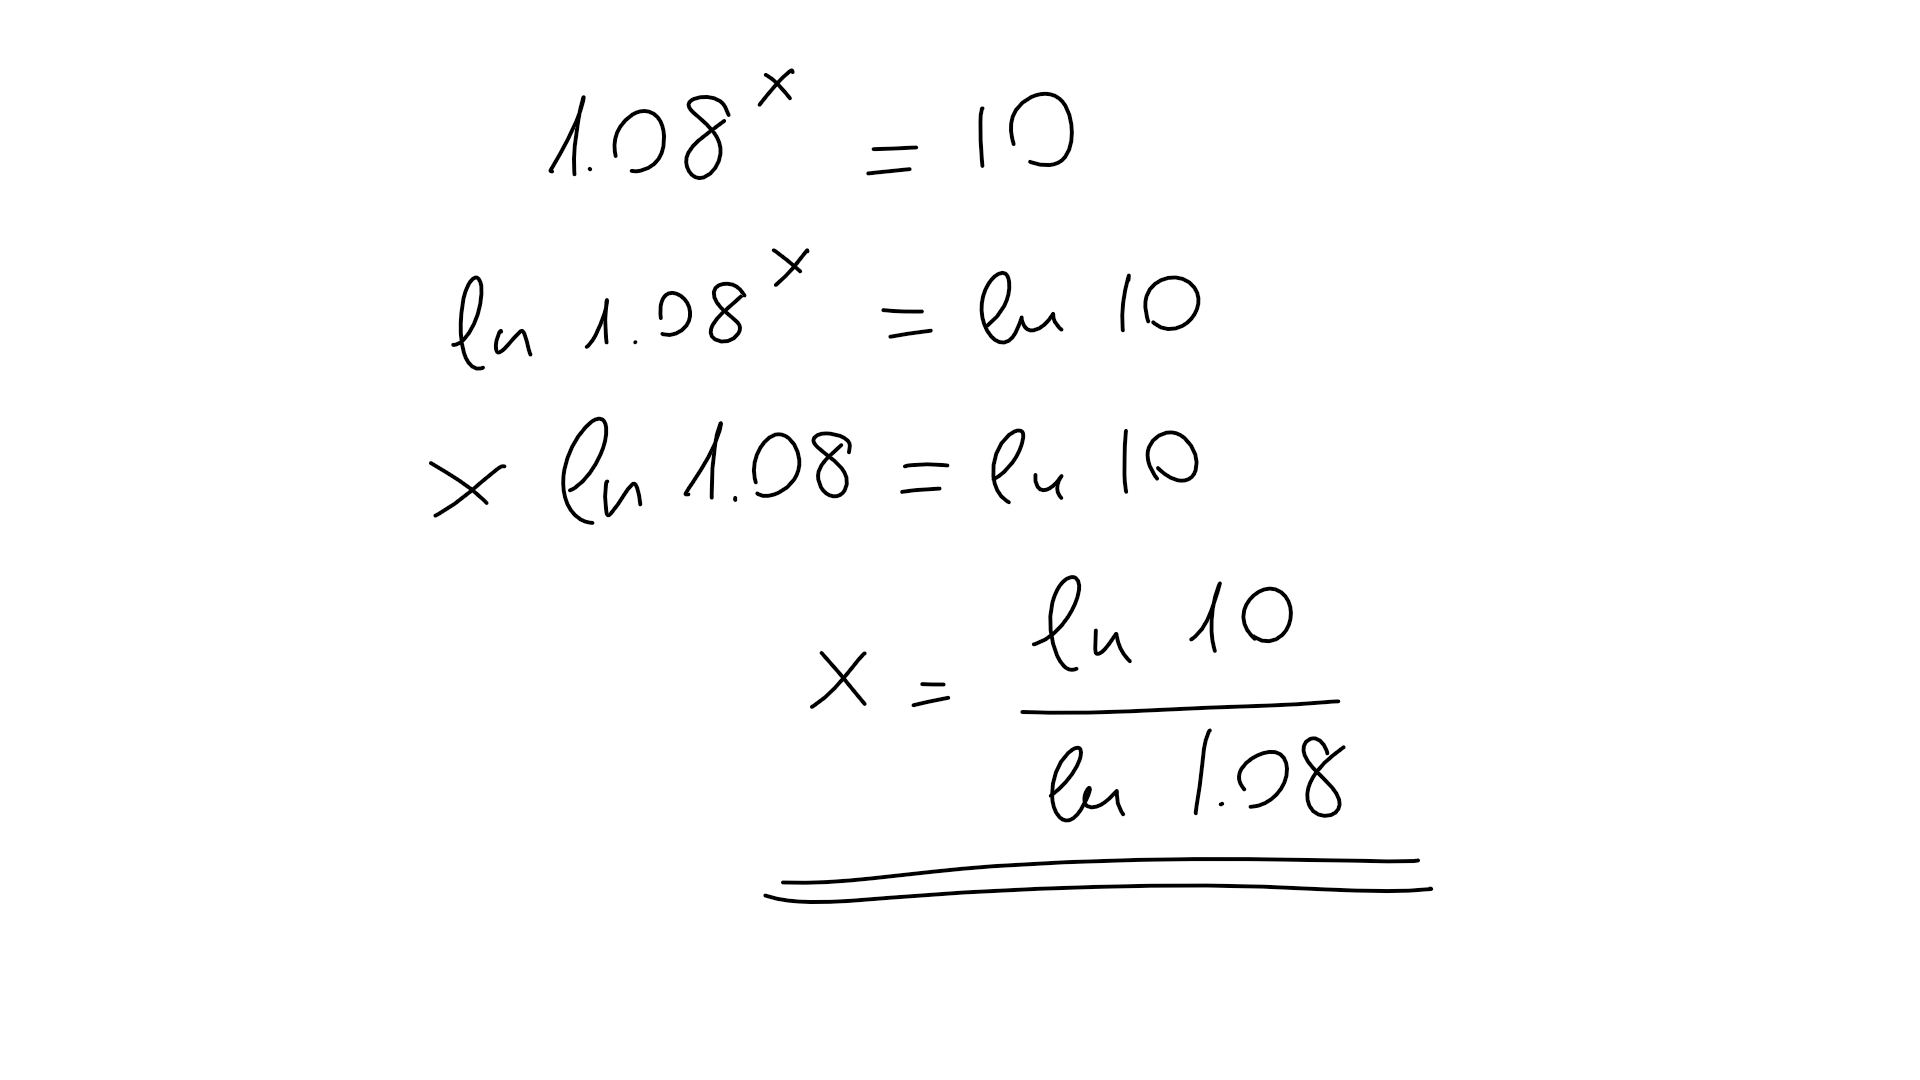 1.08^x = 10
ln 1.08^x = ln 10
x ln 1.08 = ln 10
x = ln 10 / ln 1.08